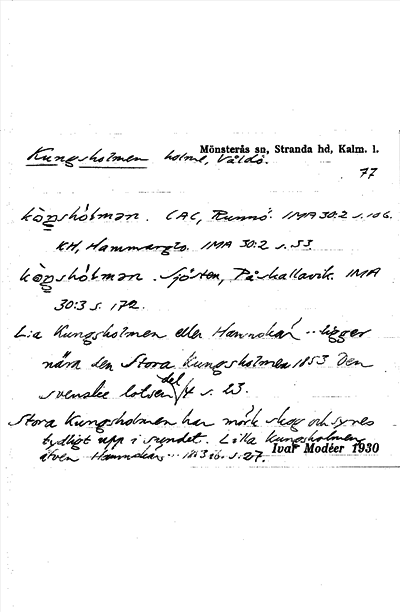 Mönsterås sn, Stranda hd, Kalm. l.
Kungsholmen holme, Våldö.
77
kòŋshólmən. CAC, Runnö. IMA 30:2 s. 106.
KH, Hammarglo. IMA 30:2 s. 53
kòŋshólmən. Sjösten, Påskallavik. IMA
30:3 s. 172.
L:a Kungsholmen eller Hamnskär ... ligger
nära den Stora Kungsholmen 1853 Den
svenske lotsen del 4 s. 23.
Stora Kungsholmen har mörk skog och synes
tydligt upp i sundet. Lilla Kungsholmen
även Hamnskär ... 1853 ib. s. 27.
Ivar Modéer 1930